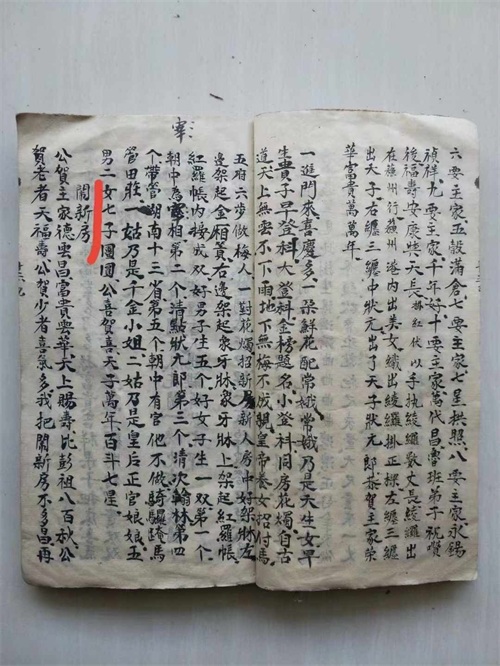 六要主家五穀滿倉七要主家七星拱照八要主家永錫
禎祥九要主家千年好十要主家萬代昌魯班弟子祝讚
後福壽安康樂天長掛紅伏以手執綾羅数丈長綾羅出
在蘇州行蘇州港内出美女織出綾羅掛正樑左纏三纏
出天子右纏三纏中狀元出了天子狀元郎恭賀主家榮
華富貴萬萬年
一進門來喜慶多一朶鮮花配常娥常娥乃是天生女早
生貴子早登科大登科金榜題名小登科同房花燭自古
道天上無雲不下雨地下無梅不成親皇帝養女招付馬
五府六步做梅人一對花燭招新房新人房中好架牀左
邊架起金相篢右邊架起象牙牀象牙牀上架起紅羅帳
紅羅帳内接成双好男子生五個好女子生一双第一个
朝中為宰相第二个清點狀元郎第三个清次翰林第四
个帶管湖南十三省第五个朝中有官他不做騎騾跨馬
管田庄一姑乃是千金小姐二姑乃是皇后正宫娘娘五
男二女七子團圓公喜賀喜天子萬年百斗七星
鬧新房
公賀主家德雲昌富貴興華天上賜壽比彭祖八百秋公
賀老者天福壽公賀少者喜氣多我把鬧新房不多昌再
宰